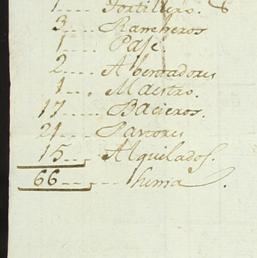 1.... Fortillero.
3.... Rancheros
1.... Paje.
2... Abentadores
1.. Maestro.
17.... Bacieros.
21.... Pastores
15.... Alquilados.
66...... Suma.